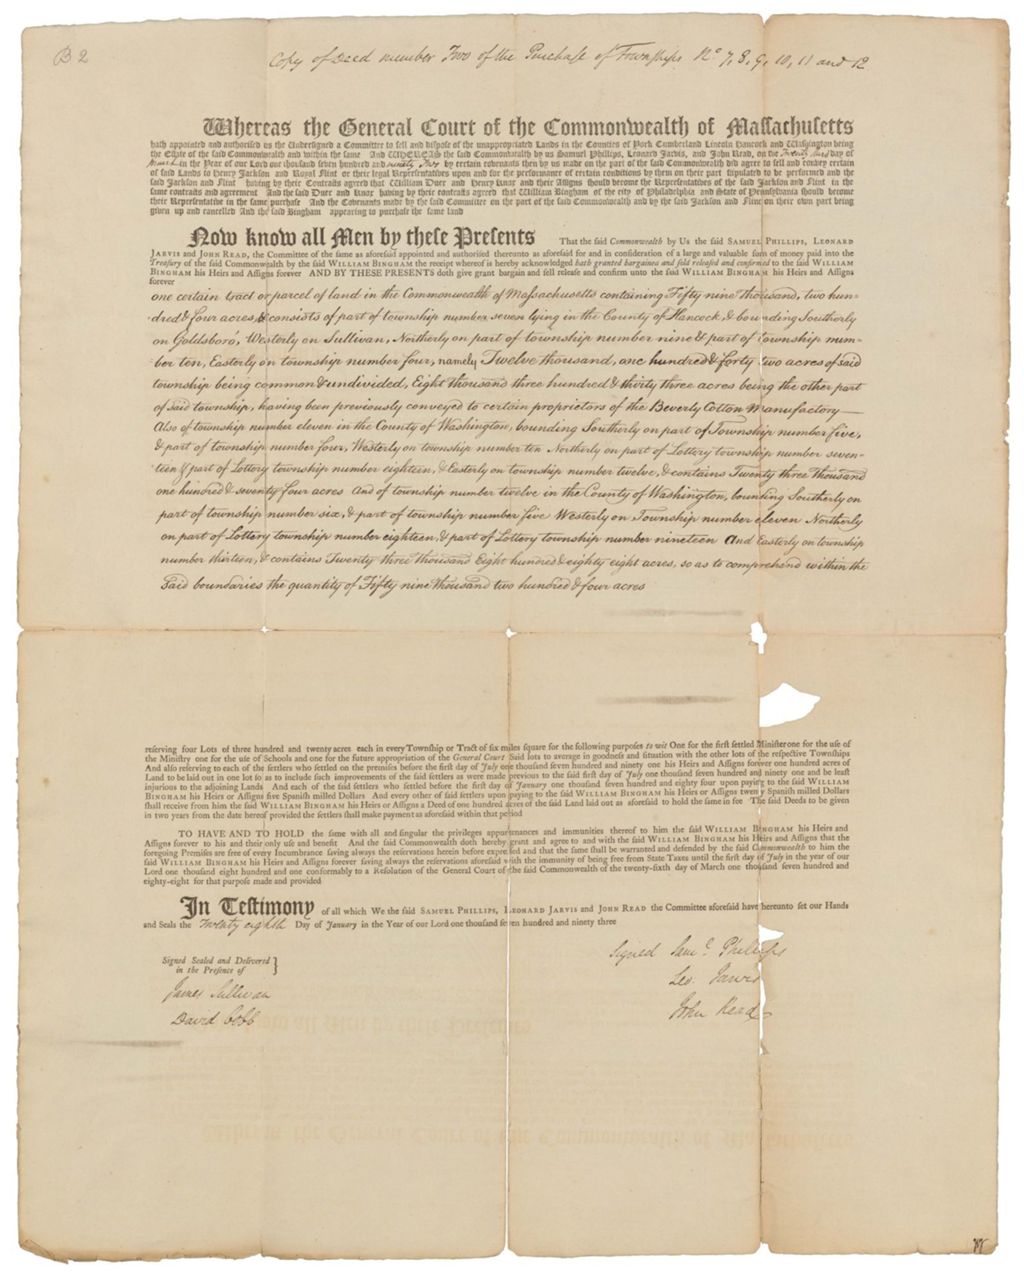 B 2
Copy of Deed number Two of the Purchase of Townships No. 7, 8, 9, 10, 11 and 12
Whereas the General Court of the Commonwealth of Massachusetts
hath appointed and authorised us the Undersigned a Committee to sell and dispose of the unappropriated Lands in the Counties of York Cumberland Lincoln Hancock and Washington being
the Estate of the said Commonwealth and within the same And WHEREAS the said Commonwealth by us Samuel Phillips, Leonard Jarvis, and John Read, on the Twenty third day of
March in the Year of our Lord one thousand seven hundred and ninety two by certain covenants then by us made on the part of the said Commonwealth did agree to sell and convey certain
of said Lands to Henry Jackson and Royal Flint or their legal Representatives upon and for the performance of certain conditions by them on their part stipulated to be performed and the
said Jackson and Flint having by their Contracts agreed that William Duer and Henry Knox and their Assigns should become the Representatives of the said Jackson and Flint in the
same contracts and agreement And the said Duer and Knox having by their contracts agreed that William Bingham of the city of Philadelphia and State of Pennsylvania should become
their Representative in the same purchase And the Covenants made by the said Committee on the part of the said Commonwealth and by the said Jackson and Flint on their own part being
given up and cancelled And the said Bingham appearing to purchase the same land
Now know all Men by these Presents That the said Commonwealth by Us the said SAMUEL PHILLIPS, LEONARD
JARVIS and JOHN READ, the Committee of the same as aforesaid appointed and authorised thereunto as aforesaid for and in consideration of a large and valuable sum of money paid into the
Treasury of the said Commonwealth by the said WILLIAM BINGHAM the receipt whereof is hereby acknowledged hath granted bargained and sold released and confirmed to the said WILLIAM
BINGHAM his Heirs and Assigns forever AND BY THESE PRESENTS doth give grant bargain and sell release and confirm unto the said WILLIAM BINGHAM his Heirs and Assigns
forever
one certain tract or parcel of land in the Commonwealth of Massachusetts containing Fifty nine Thousand, two hun-
-dred & four acres, & consists of part of township number seven lying in the County of Hancock, & bounding Southerly
on Goldsboro', Westerly on Sullivan, Northerly on part of township number nine & part of township num-
-ber ten, Easterly on township number four, namely Twelve thousand, one hundred & forty two acres of said
township being common & undivided, Eight Thousand three hundred & thirty three acres being the other part
of said township, having been previously conveyed to certain proprietors of the Beverly Cotton Manufactory —
Also of township number eleven in the County of Washington, bounding Southerly on part of Township number five,
& part of township number four, Westerly on township number ten Northerly on part of Lottery township number seven-
teen & part of Lottery township number eighteen, & Easterly on township number twelve, & contains Twenty three Thousand
one hundred & seventy four acres And of township number twelve in the County of Washington, bounding Southerly on
part of township number six, & part of township number five Westerly on Township number eleven Northerly
on part of Lottery township number eighteen, & part of Lottery township number nineteen And Easterly on township
number thirteen, & contains Twenty three thousand Eight hundred & eighty eight acres, so as to comprehend within the
said boundaries the quantity of Fifty nine Thousand two hundred & four acres
reserving four Lots of three hundred and twenty acres each in every Township or Tract of six miles square for the following purposes to wit One for the first settled Minister one for the use of
the Ministry one for the use of Schools and one for the future appropriation of the General Court Said lots to average in goodness and situation with the other lots of the respective Townships
And also reserving to each of the settlers who settled on the premises before the first day of July one thousand seven hundred and ninety one his Heirs and Assigns forever one hundred acres of
Land to be laid out in one lot so as to include such improvements of the said settlers as were made previous to the said first day of July one thousand seven hundred and ninety one and be least
injurious to the adjoining Lands And each of the said settlers who settled before the first day of January one thousand seven hundred and eighty four upon paying to the said WILLIAM
BINGHAM his Heirs or Assigns five Spanish milled Dollars And every other of said settlers upon paying to the said WILLIAM BINGHAM his Heirs or Assigns twenty Spanish milled Dollars
shall receive from him the said WILLIAM BINGHAM his Heirs or Assigns a Deed of one hundred acres of the said Land laid out as aforesaid to hold the same in fee The said Deeds to be given
in two years from the date hereof provided the settlers shall make payment as aforesaid within that period
TO HAVE AND TO HOLD the same with all and singular the privileges appurtenances and immunities thereof to him the said WILLIAM BINGHAM his Heirs and
Assigns forever to his and their only use and benefit And the said Commonwealth doth hereby grant and agree to and with the said WILLIAM BINGHAM his Heirs and Assigns that the
foregoing Premises are free of every Incumbrance saving always the reservations herein before expressed and that the same shall be warranted and defended by the said Commonwealth to him the
said WILLIAM BINGHAM his Heirs and Assigns forever saving always the reservations aforesaid with the immunity of being free from State Taxes until the first day of July in the year of our
Lord one thousand eight hundred and one conformably to a Resolution of the General Court of the said Commonwealth of the twenty-sixth day of March one thousand seven hundred and
eighty-eight for that purpose made and provided
In Testimony of all which We the said SAMUEL PHILLIPS, LEONARD JARVIS and JOHN READ the Committee aforesaid have hereunto set our Hands
and Seals the Twenty eighth Day of January in the Year of our Lord one thousand seven hundred and ninety three
Signed Sealed and Delivered
in the Presence of
James Sullivan
David Cobb
Signed Saml. Phillips
Leo. Jarvis
John Read